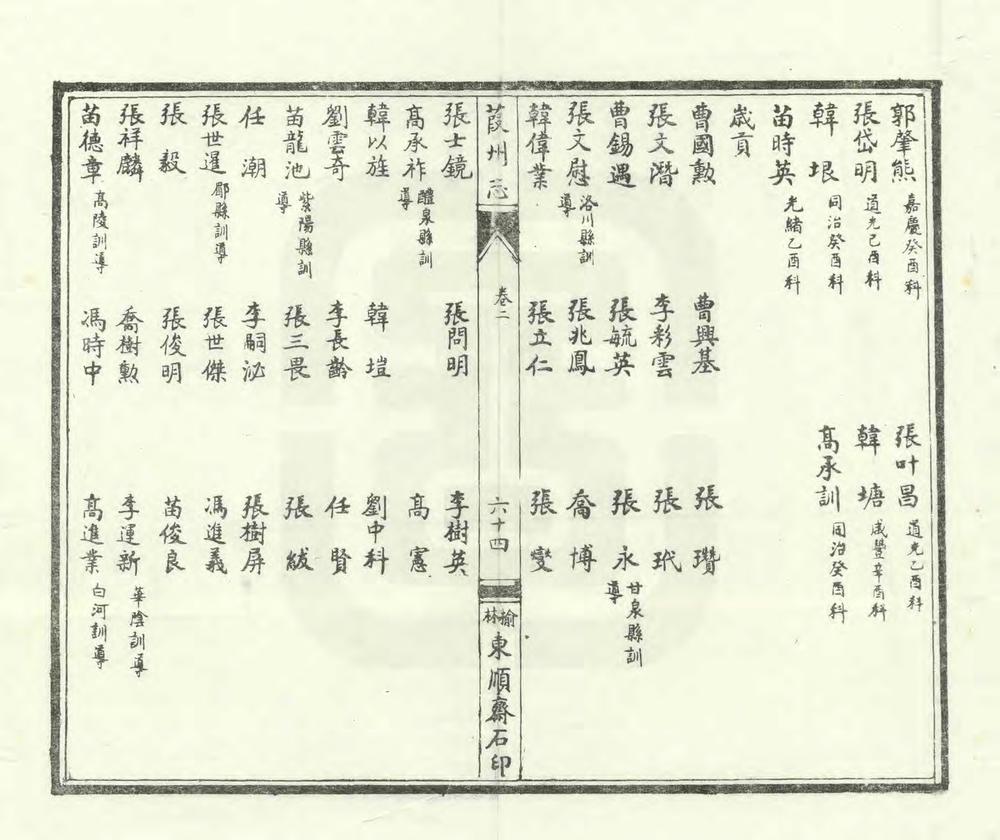 郭肇熊 嘉慶癸酉科 張叶昌 道光乙酉科
張岱明 道光己酉科 韓塘 咸豐辛酉科
韓垠 同治癸酉科 高承訓 同治癸酉科
苗時英 光緒乙酉科
歲貢
曹國勲 曹興基 張瓚
張文潛 李彩雲 張玳
曹錫遇 張毓英 張永 甘泉縣訓導
張文慰 洛川縣訓導 張兆鳳 喬博
韓偉業 張立仁 張燮
葭州志 卷二 六十四 榆林東順齋石印
張士鏡 張問明 李樹英
高承祚 醴泉縣訓導 高憲
韓以旌 韓塏 劉中科
劉雲奇 李長齡 任賢
苗龍池 紫陽縣訓導 張三畏 張紱
任潮 李嗣泌 張樹屏
張世暹 郿縣訓導 張世傑 馮進義
張毅 張俊明 苗俊良
張祥麟 喬樹勲 李運新 華陰訓導
苗德章 高陵訓導 馮時中 高進業 白河訓導